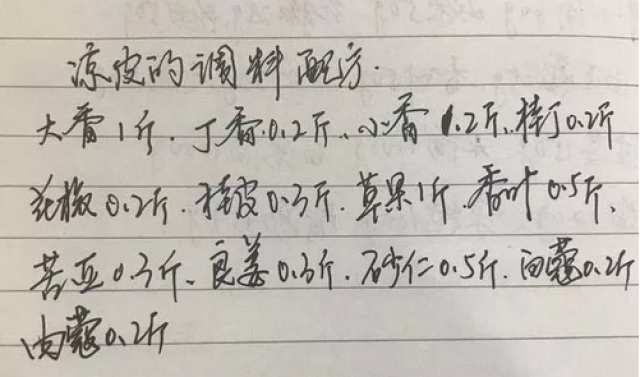 凉皮的调料配方.
大香1斤.丁香0.2斤、小香1.2斤、桂丁0.2斤
花椒0.2斤.桂皮0.3斤.草果1斤.香叶0.5斤、
苦豆0.3斤、良姜0.3斤.砂仁0.5斤.白蔻0.2斤
肉蔻0.2斤